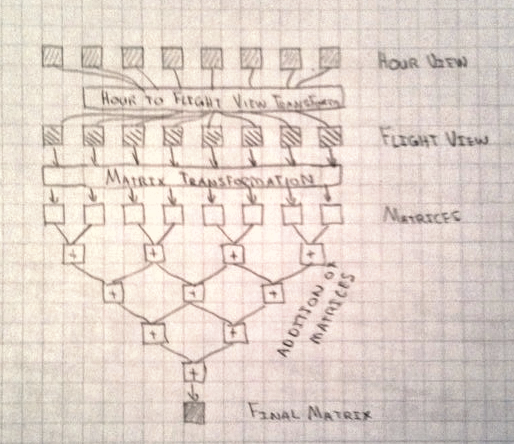 HOUR VIEW
HOUR TO FLIGHT VIEW TRANSFORM
FLIGHT VIEW
MATRIX TRANSFORMATION
MATRICES
+ + + +
+ + +
ADDITION OF
MATRICES
+ +
+
FINAL MATRIX